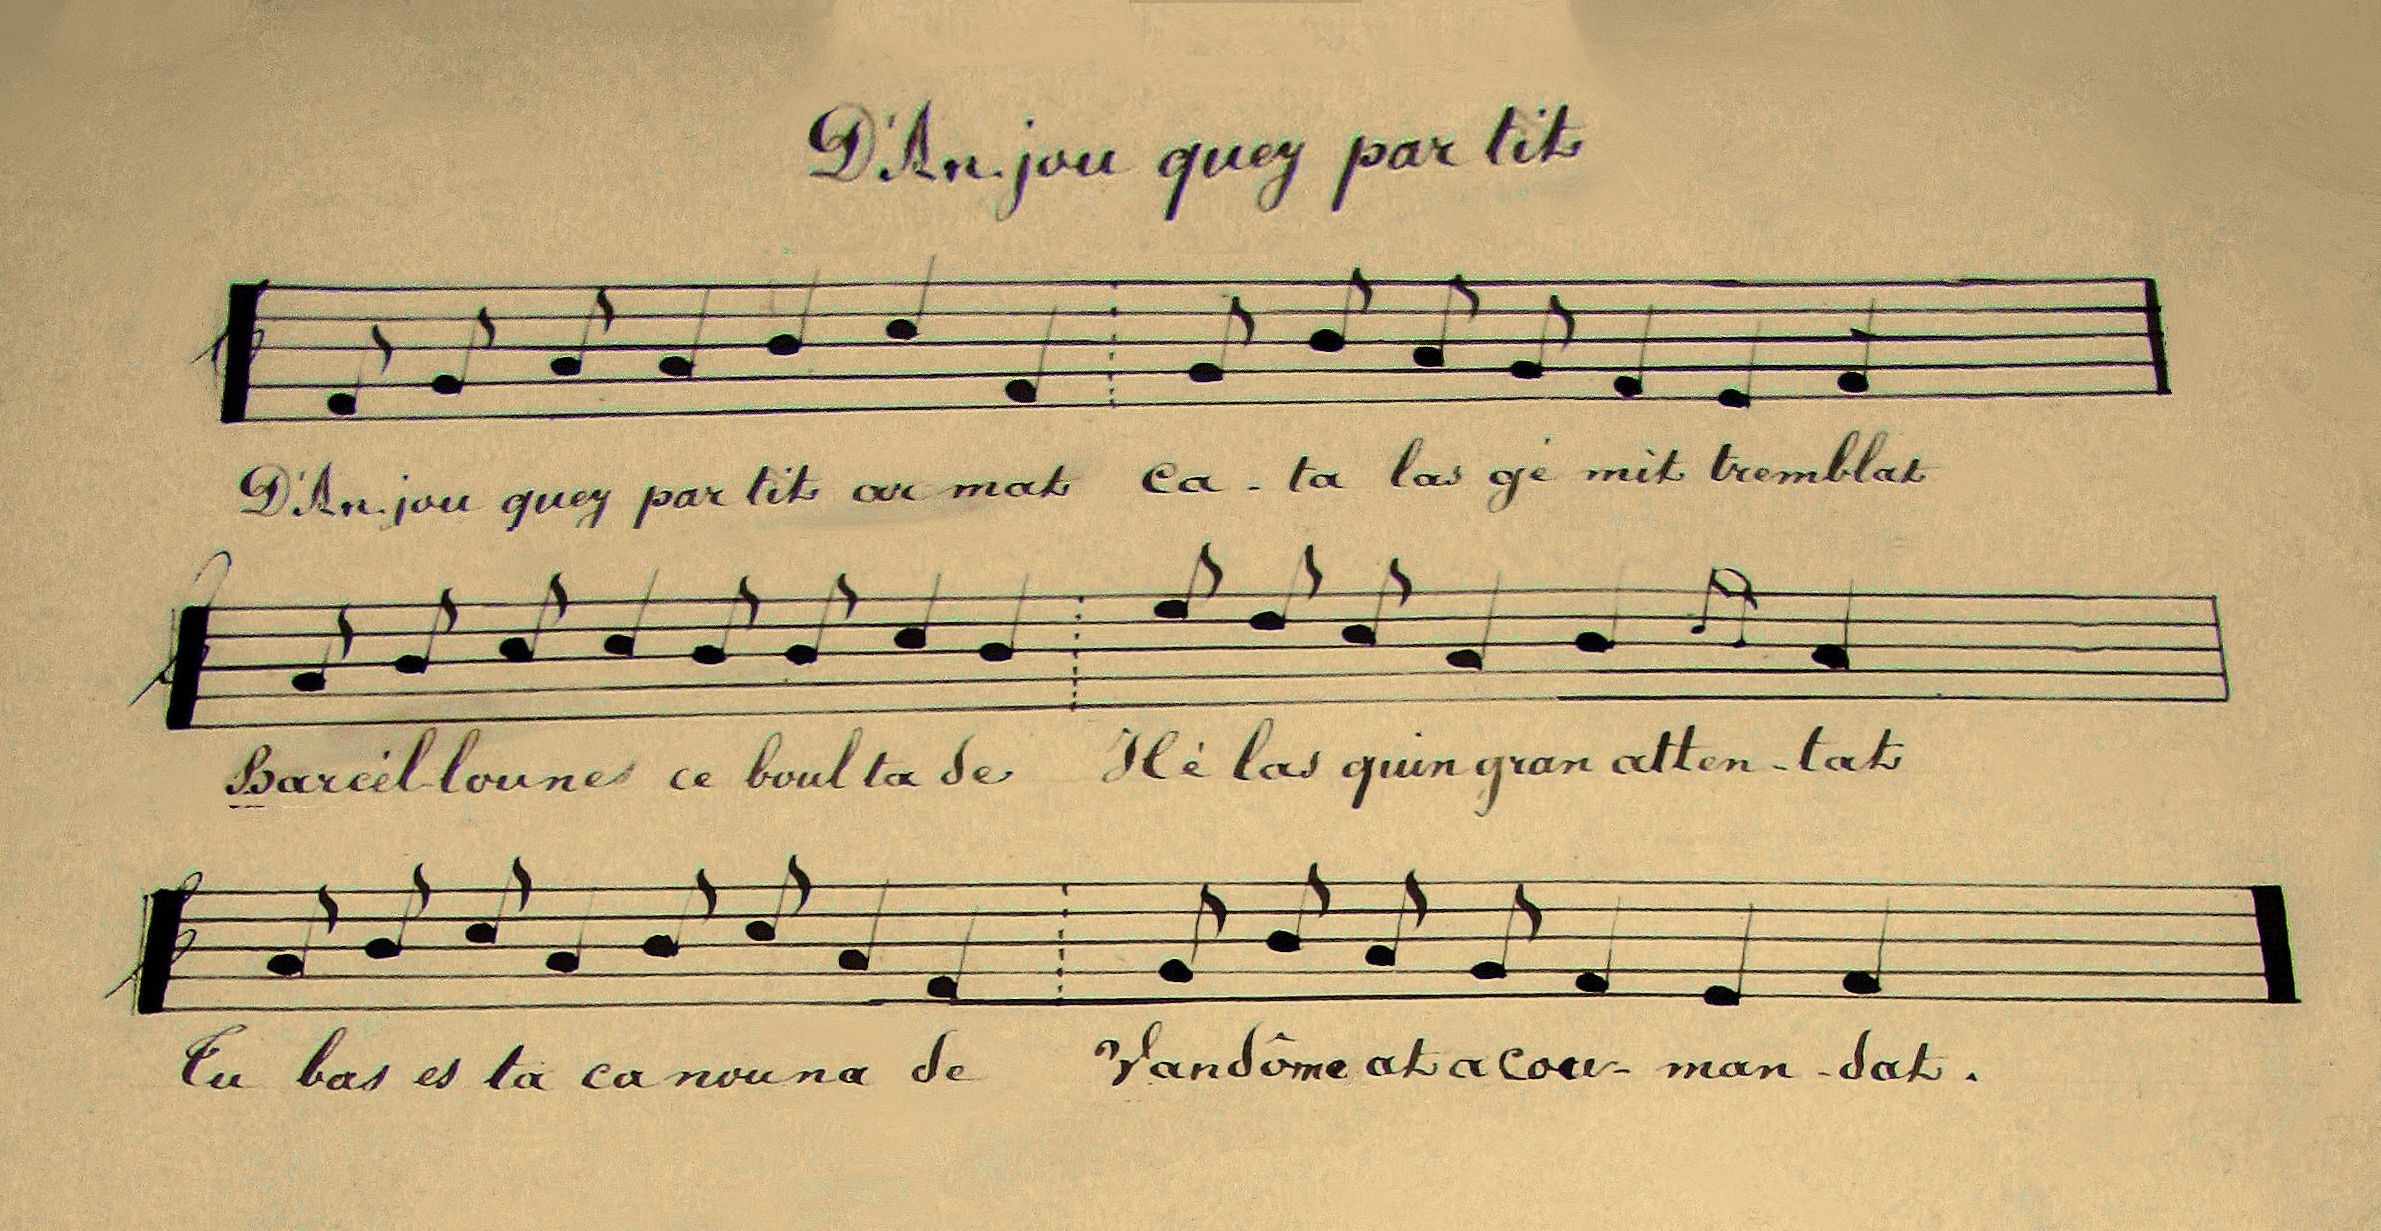 D'An-jou quey par tit
D'An-jou quey par tit ar mat ca-ta las gé mit tremblat
Barcél-lounes ce boul ta de Hé las quin gran atten-tat
Tu bas es ta ca nou na de Vandôme at a cou-man-dat.